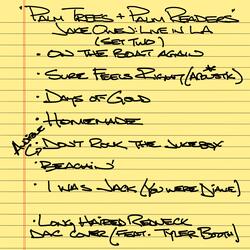 "PALM TREES + PALM READERS"
JAKE OWEN: LIVE IN LA
(SET TWO)
· ON THE BOAT AGAIN
· SURE FEELS RIGHT (ACOUSTIC)*
· DAYS OF GOLD
· HOMEMADE
· DON'T ROCK THE JUKEBOX
· "BEACHIN'
· I WAS JACK (YOU WERE DIANE)
· LONG HAIRED REDNECK
DAC COVER (FEAT. TYLER BOOTH)